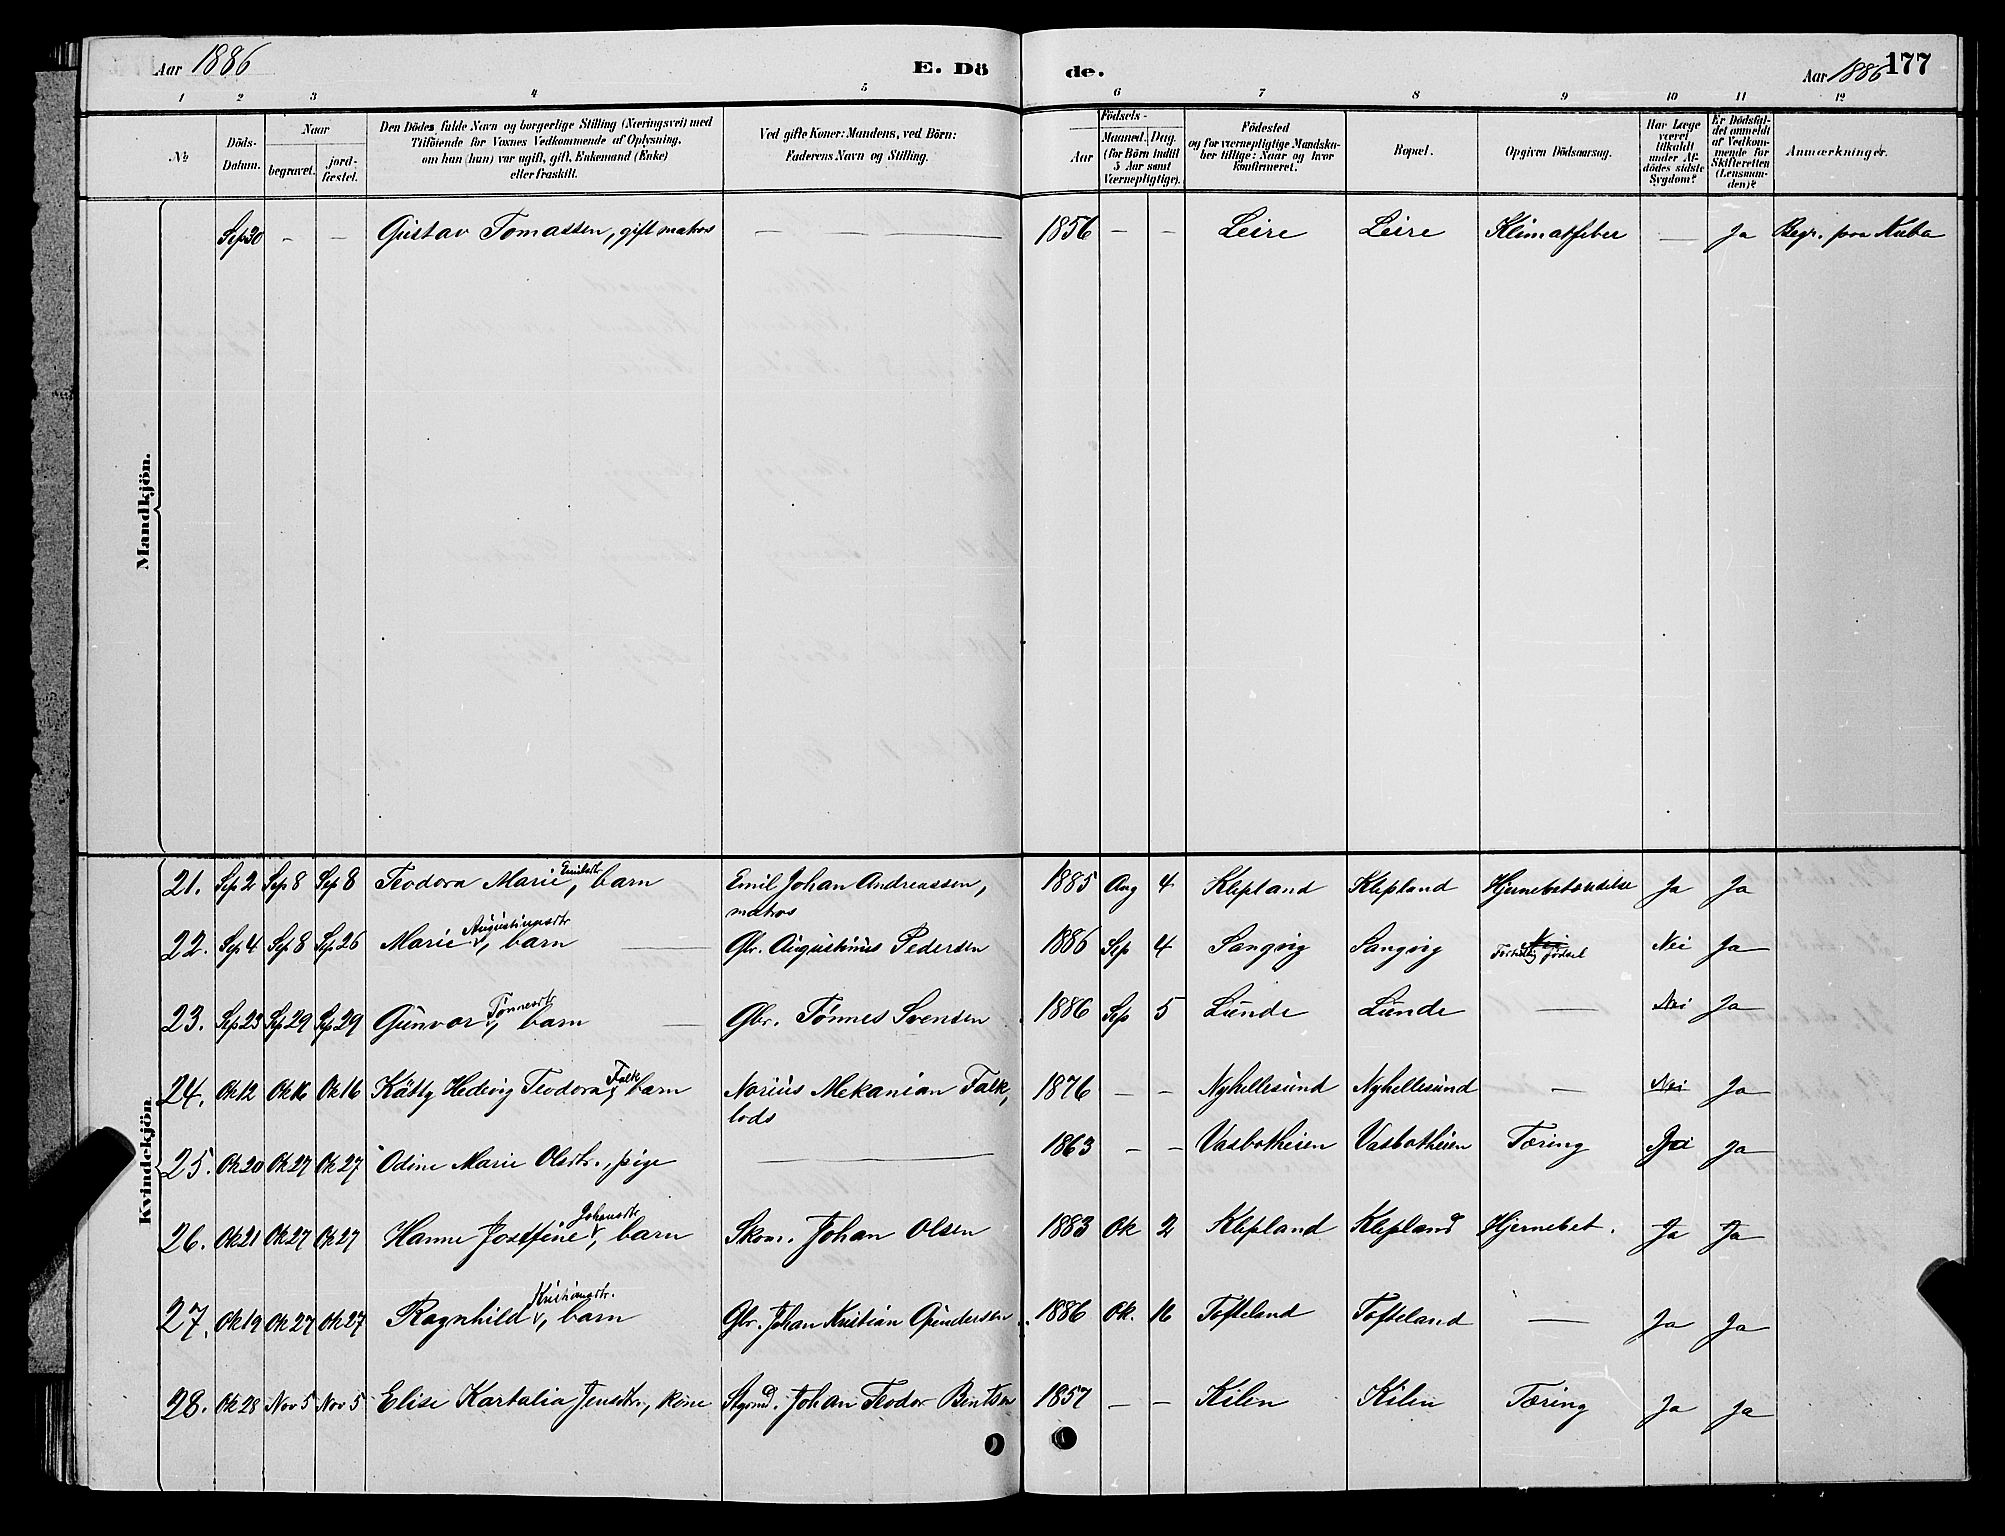 Aar 1886
E. Dö
de.
Aar 1886
177
1 2 3 4 5 6 7 8 9 10 11 12
№
Döds-
Datum.
Naar
begravet.
jord-
fæstet.
Den Dödes fulde Navn og borgerlige Stilling (Næringsvei) med
Tilföiende for Voxnes Vedkommende af Oplysning,
om han (hun) var ugift, gift, Enkemand (Enke)
eller fraskilt.
Ved gifte Koner: Mandens, ved Börn:
Faderens Navn og Stilling.
Födsels-
Aar
Maaned.
Dag.
(for Börn indtil
5 Aar samt
Værnepligtige).
Födested
og for værnepligtige Mandska-
ber tillige: Naar og hvor
konfirmeret.
Bopæl.
Opgiven Dödsaarsag.
Har Læge
været
tilkaldt
under Af-
dödes sidste
Sygdom?
Er Dödsfal-
det anmeldt
af Vedkom-
mende for
Skifteretten
(Lensman-
den)?
Anmærkninger.
Mandkjön.
Sep 30 — — Gustav Tomassen, gift matros — — — 1856 — — Leire Leire Klimatfeber — Ja Begr. paa Kuba
Kvindekjön
21. Sep 2 Sep 8 Sep 8 Teodora Marie Emilsdtr, barn Emil Johan Andreassen, matros 1885 Aug 4 Klepland Klepland Hjernebetændelse Ja Ja
22. Sep 4 Sep 8 Sep 26 Marie Augustinusdtr, barn — Gbr. Augustinus Pedersen 1886 Sep 4 Sangvig Sangvig Nei Fortidlig födsel Nei Ja
23. Sep 23 Sep 29 Sep 29 Gunvor Tönnesdtr, barn — Gbr. Tönnes Svensen 1886 Sep 5 Lunde Lunde — Nei Ja
24. Ok 12 Ok 16 Ok 16 Kätty Hedvig Teodora Falk, barn Norius Mekanian Falk, lods 1876 — — Nyhellesund Nyhellesund — Nei Ja
25. Ok 20 Ok 27 Ok 27 Odine Marie Olsdtr., pige — 1863 — — Vasbotheien Vasbotheien Tæring Ja
26. Ok 21 Ok 27 Ok 27 Hanne Josefine Johansdtr, barn Skom. Johan Olsen 1883 Ok 2 Klepland Klepland Hjernebet. Ja Ja
27. Ok 19 Ok 27 Ok 27 Ragnhild Kristiansdtr., barn Gbr. Johan Kristian Gundersen 1886 Ok. 16 Tofteland Tofteland — Ja Ja
28. Ok 28 Nov 5 Nov 5 Elise Kartalia Jensdtr., kone Johan Teodor Bentsen 1857 — — Kilen Kilen Tæring Ja Ja